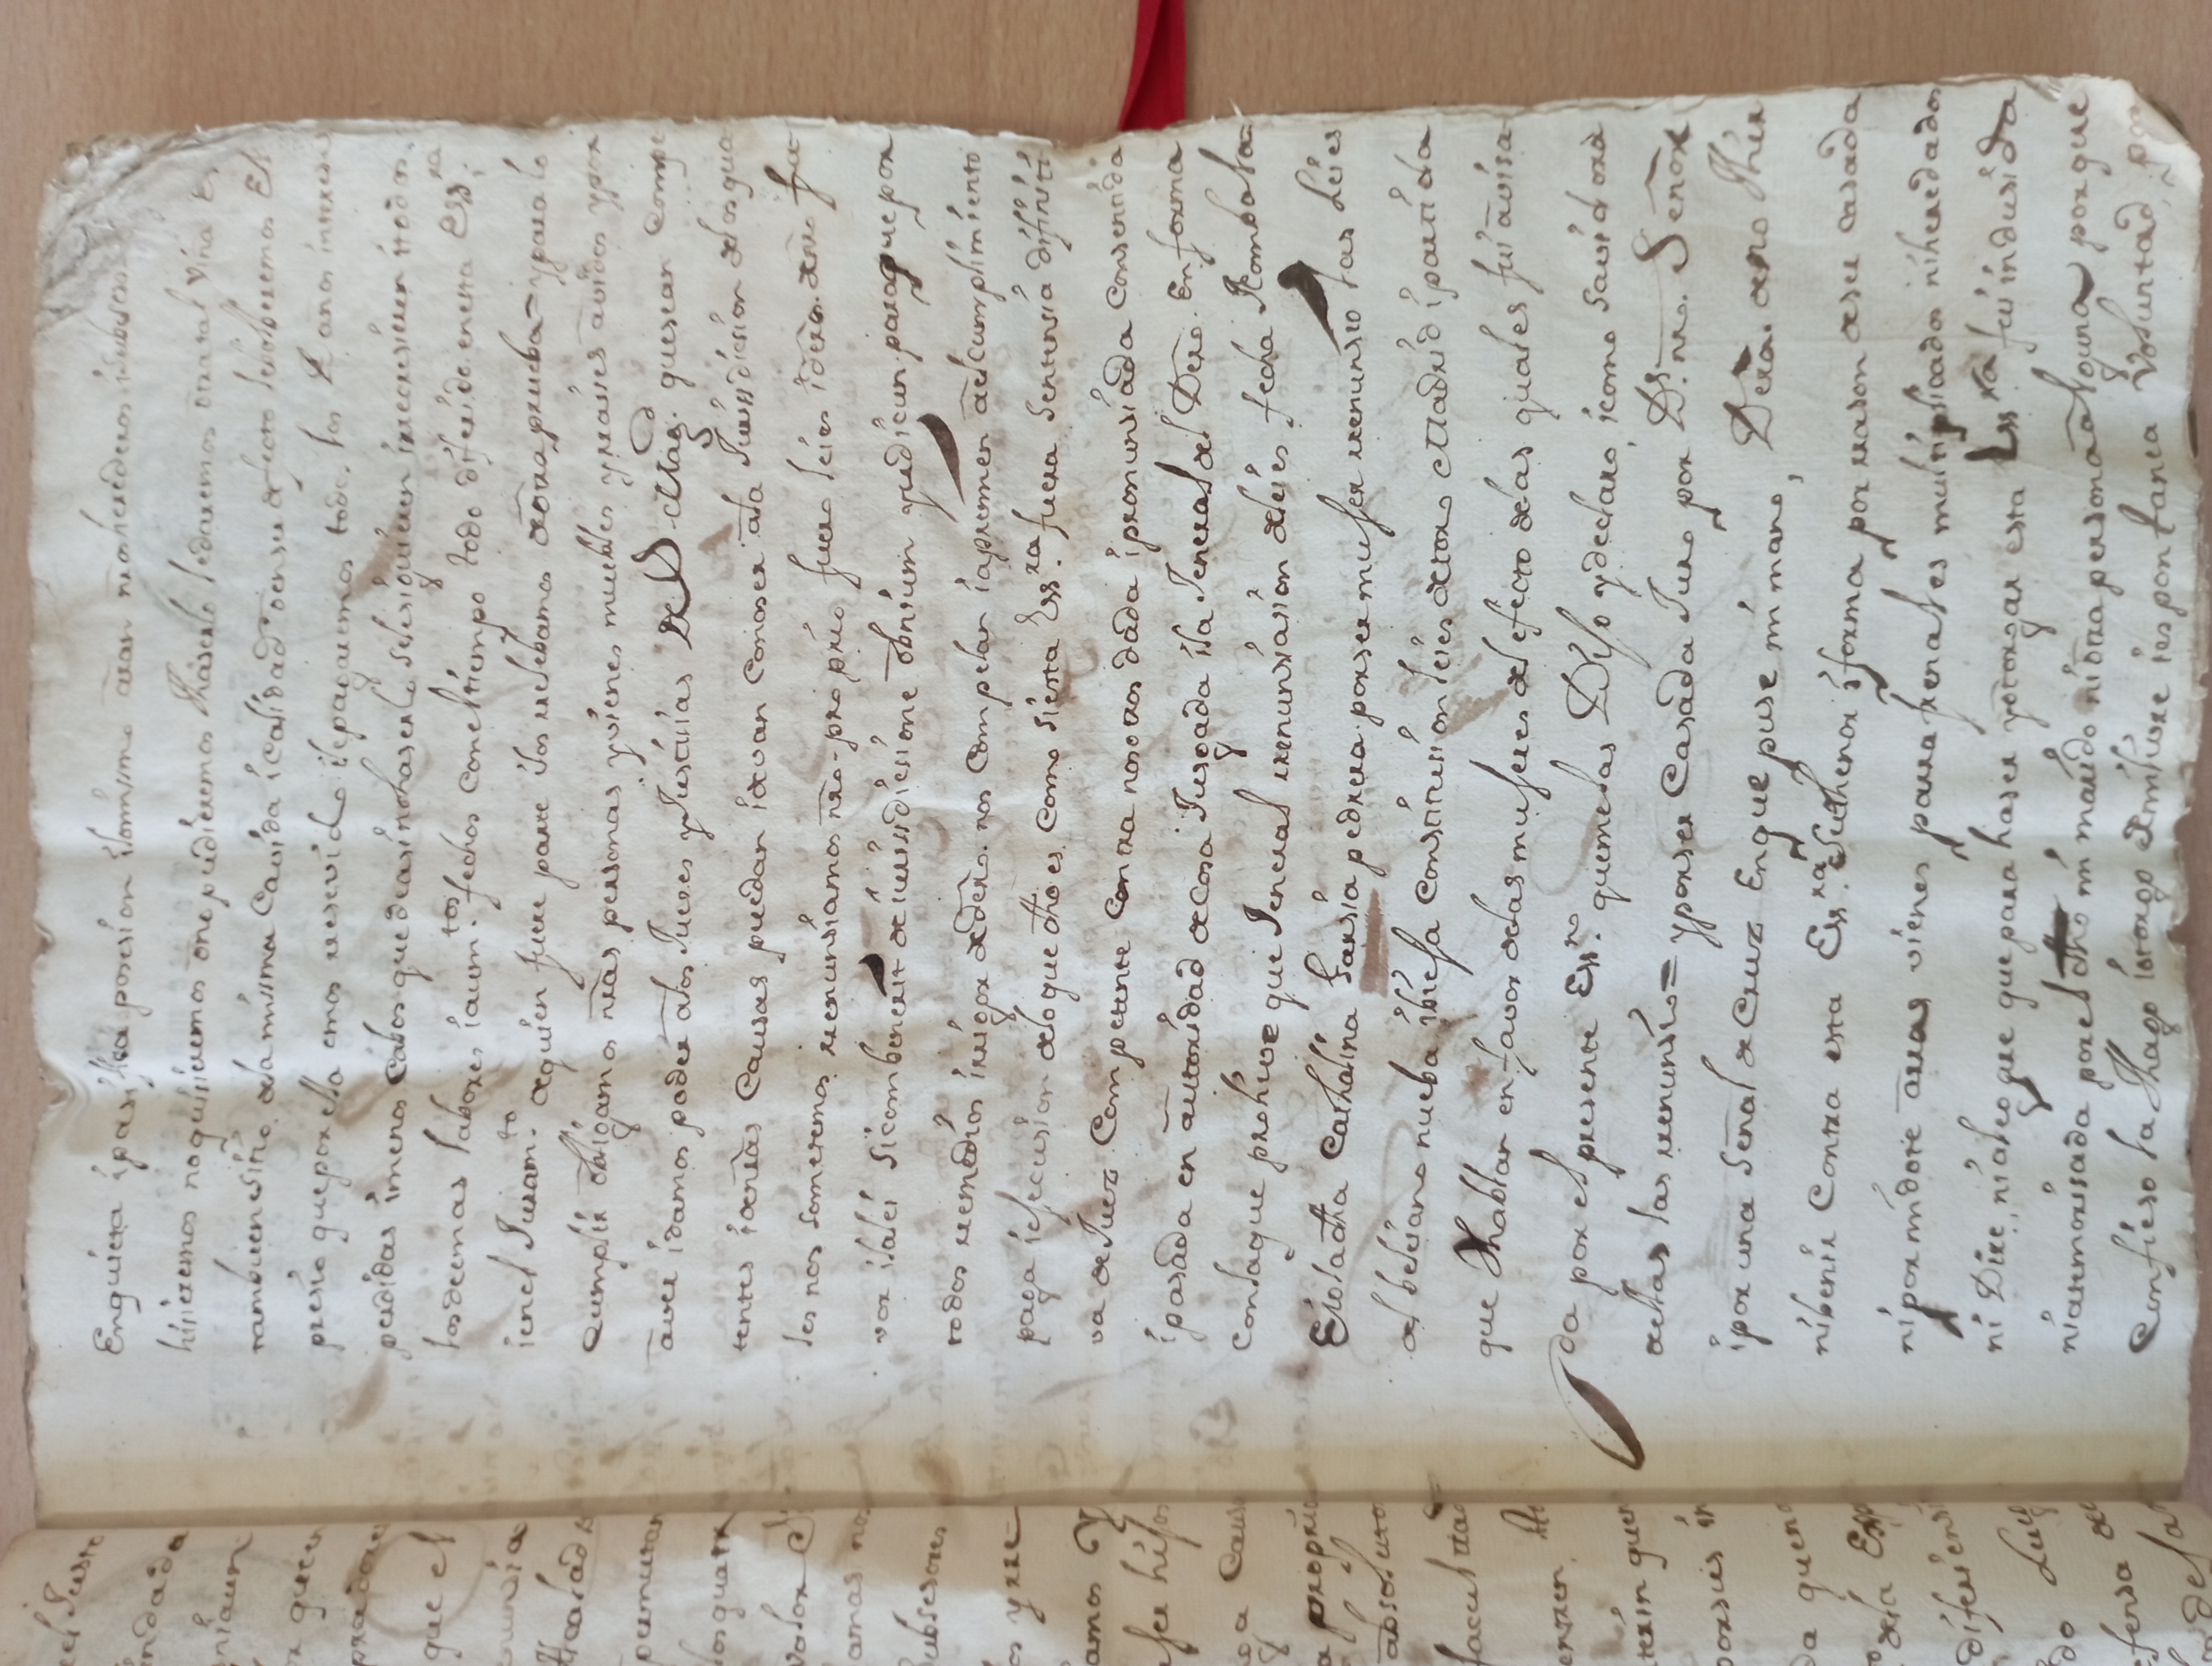 el Justo
indada
ni aun
or que en
pradores
que el
enunsia
permutar
los quatr
valor
amas no
Subsesores
os y rre
amos Y
ser hijos
ga Caus
a propria
absoluto
facultad
entren
terin quen
por sus in
da quen
dela Ess
difiriens
do Lueg
efensa de
Enquieta i pasifica posesion ilomismo aran nros herederos i Subseso
hisieremos no quisieremos o no pudieremos Thaserlo le daremos otra tal Viña En
tambuen sitio dela missma Cavida i calidad o en su defecto le bolberemos El
presio que por ella emos rresevido i le pagaremos todos los Daños intereses
perdidas i menos Cabos que de asi no haserlo se le siguieren i rrecresieren i todos
los demas labores i aumtos. fechos con el tiempo todo diferido en esta Essra i
i en el Juramto. de quien fuere parte i los rrelebamos de otra prueba = y para lo
Cumplir obligamos nras personas y vienes muebles y rraises avidos y por
aver i damos poder a los Jueses y Justisias De S Magd. que sean Compe
tentes i de nras Causas puedan i devan Conoser a la Jurissdision de los qua
les nos sometemos rrenunsiamos nro. proprio fuero leies i dero. de nro fa
vor i la lei Sicombenerit de iurissdisione obnium yudicun para que por
todos rremedios i rrigor de dero. nos Compelan i apremien a el cumplimiento
paga i esecusion de lo que dho es Como si esta Essra. fuera Sentensia difiniti
va de Juez Competente Contra nosotros dada i pronunsiada Consentida
i pasada en autoridad de Cosa Jusgada i la Jeneral del Dero. En forma
con la que prohive que Jeneral rrenunsiasion de leies fecha Nombala =
E io la dha Cathalina Garsia pedrera por ser muser rrenunsio las Leies
del beleiano nueba i biesa Constitusion leies de toro Madrid i partida
que Thablan en favor delas museres del efecto de las quales fui avisa
da por el presente Essno. que me las Diso y declaro, i como savidora
dellas las rrenunsio = y por ser Casada Juro por Ds. nro. Señor
i por una Señal de Cruz En que puse mi mano, Dera. de no Thir
ni benir Contra esta Essra. Suthenor i forma por rrason de ser casada
ni por mi dote arras vienes parrafrenales multiplicados ni heredados
ni Dire ni alegare que para haser y otorgar esta Essra. fui indusida
ni atemorisada por el dho mi marido ni otra persona alguna por que
Confieso la Thago i otorgo de mi livre i espontanea Voluntad por